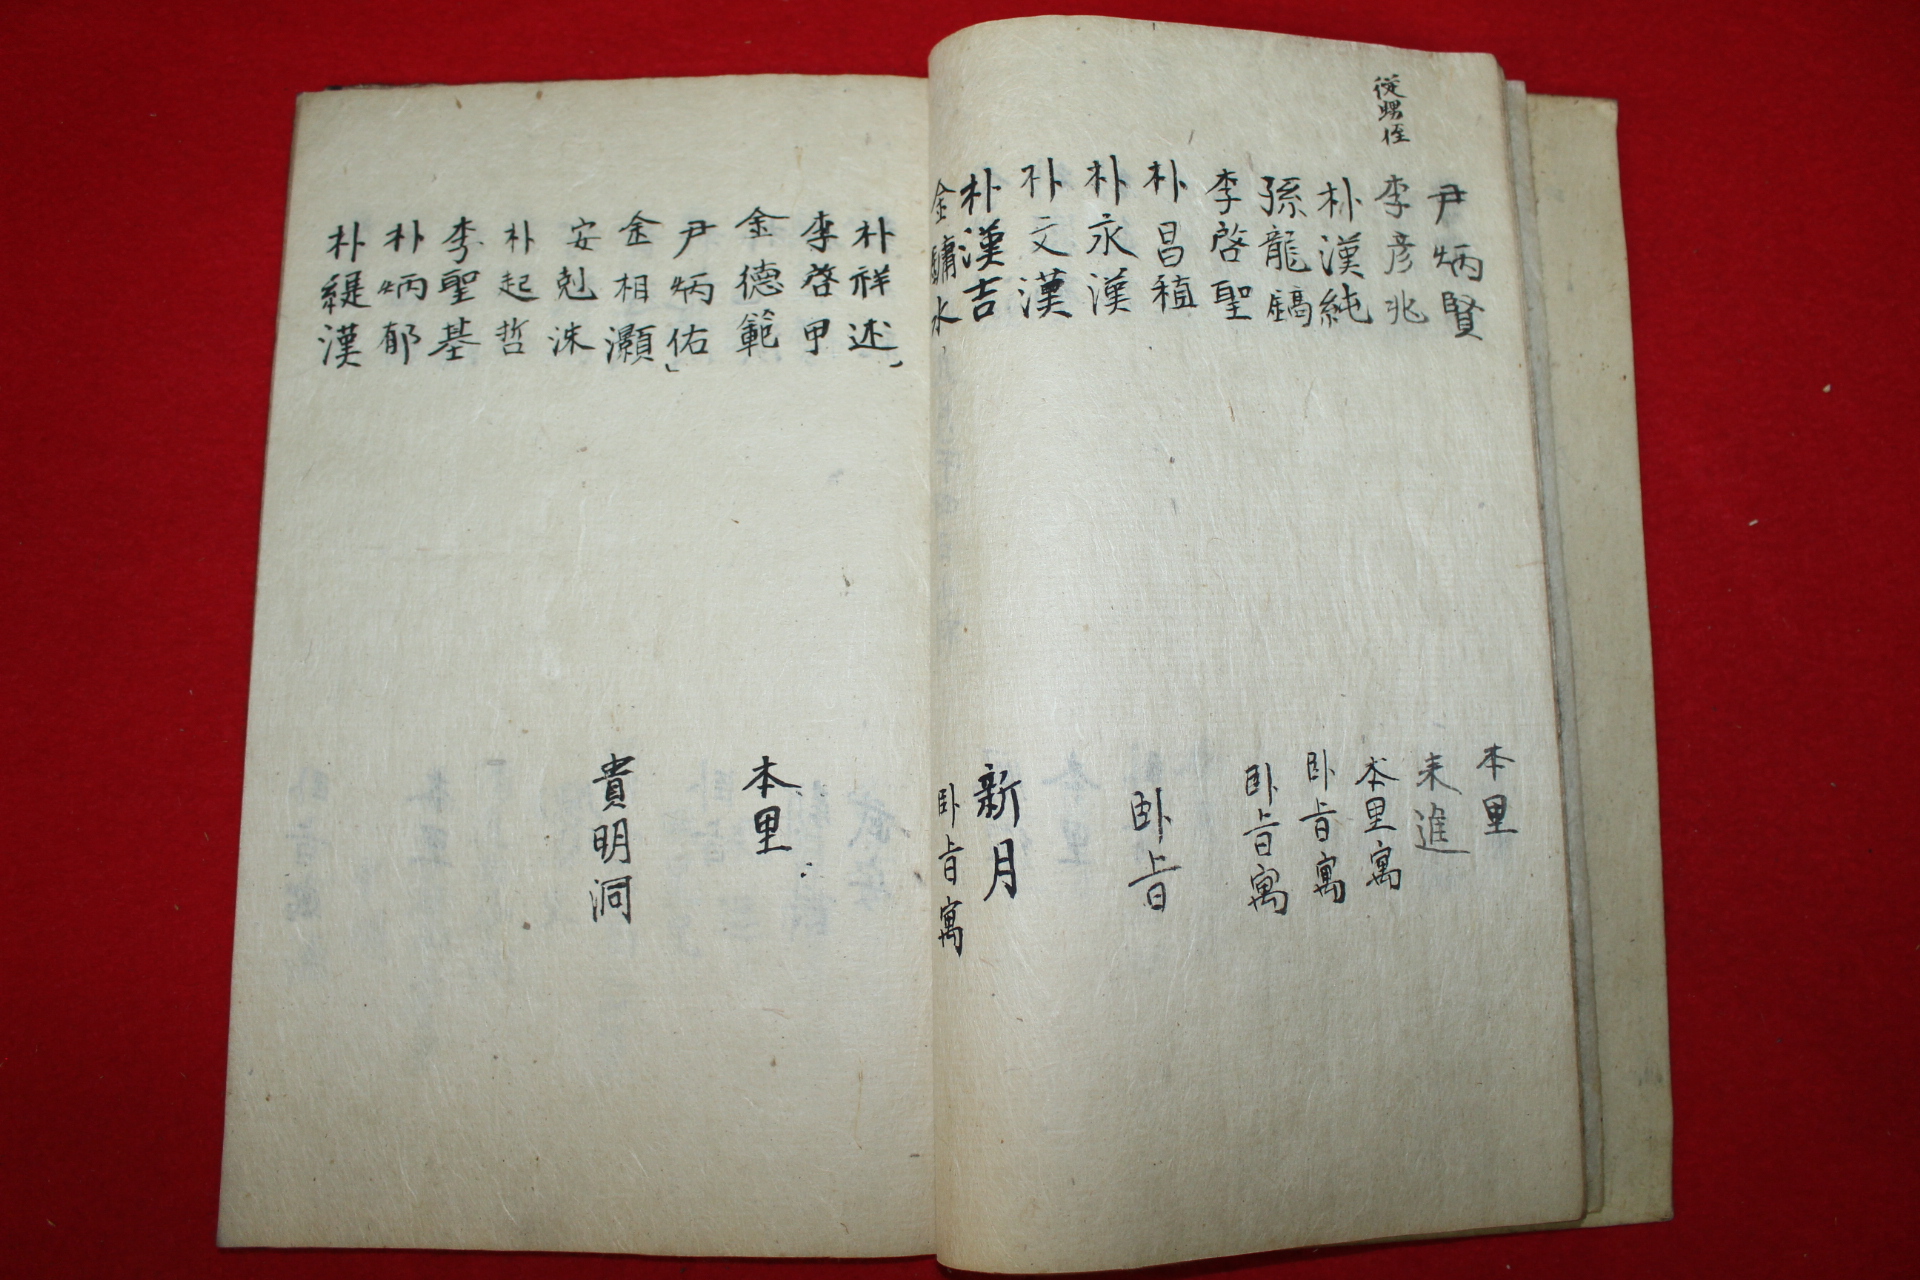 尹炳賢 本里
從甥侄 李彦兆 来進
朴漢純 本里寓
孫龍鎬 卧旨寓
李啓聖 卧旨寓
朴昌稙 卧旨
朴永漢
朴文漢
朴漢吉 新月
金鏞水 卧旨寓
朴祥述
李啓甲
金德範 本里
尹炳佑
金相灝 貴明洞
安剋洙
朴起哲
李聖基
朴炳郁
朴緹漢